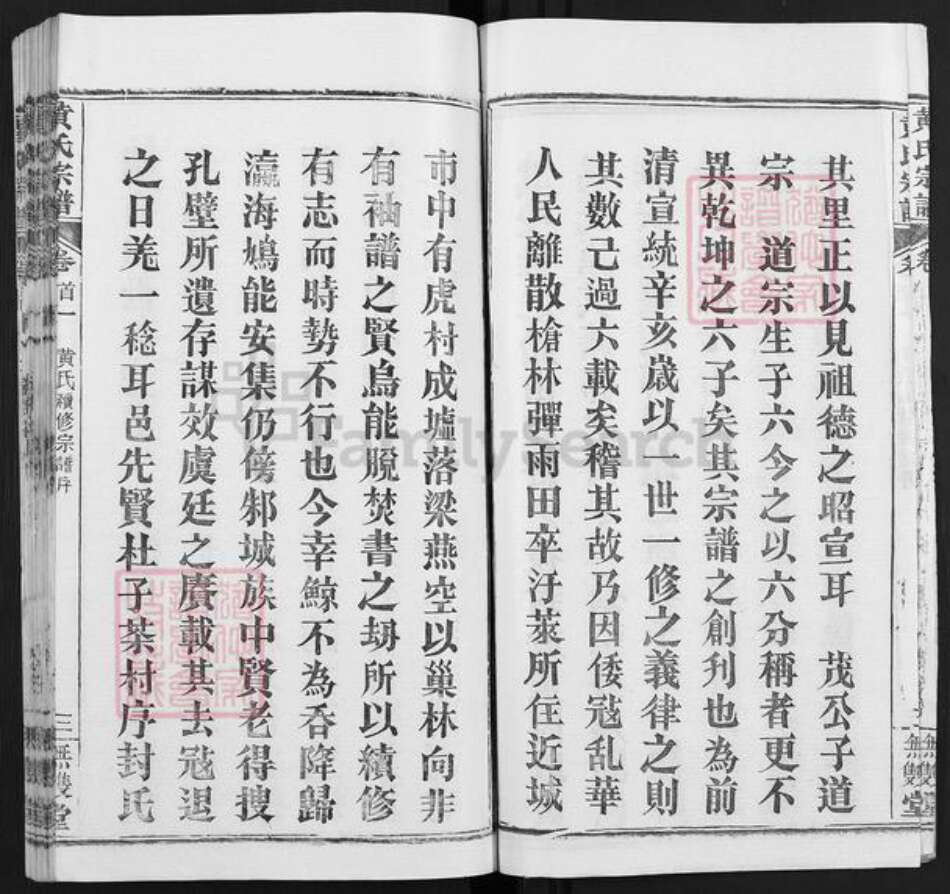 其里正以見祖德之昭宣耳　茂公子道
宗　道宗生子六今之以六分稱者更不
異乾坤之六子矣其宗譜之創刋也為前
清宣統辛亥嵗以一世一修之義律之則
其數已過六載矣稽其故乃因倭冦乱華
人民離散槍林彈雨田卒汙萊所住近城
市中有虎村成墟落梁燕空以巢林向非
有袖譜之賢烏能脱焚書之刼所以續修
有志而時勢不行也今幸鯨不為吞降歸
瀛海鳩能安集仍傍邾城族中賢老得搜
孔壁所遺存謀效虞廷之賡載其去冦退
之日羌一稔耳邑先賢杜子茶村序封氏
黄氏宗譜
卷首一
黄氏續修宗譜序
三
無雙堂
黄氏宗譜
卷
無雙堂
FamilySearch